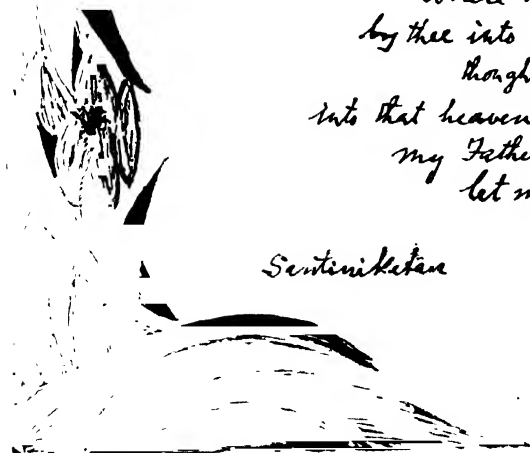 by thee into
though
into that heaven
my Father
let m
Santiniketan